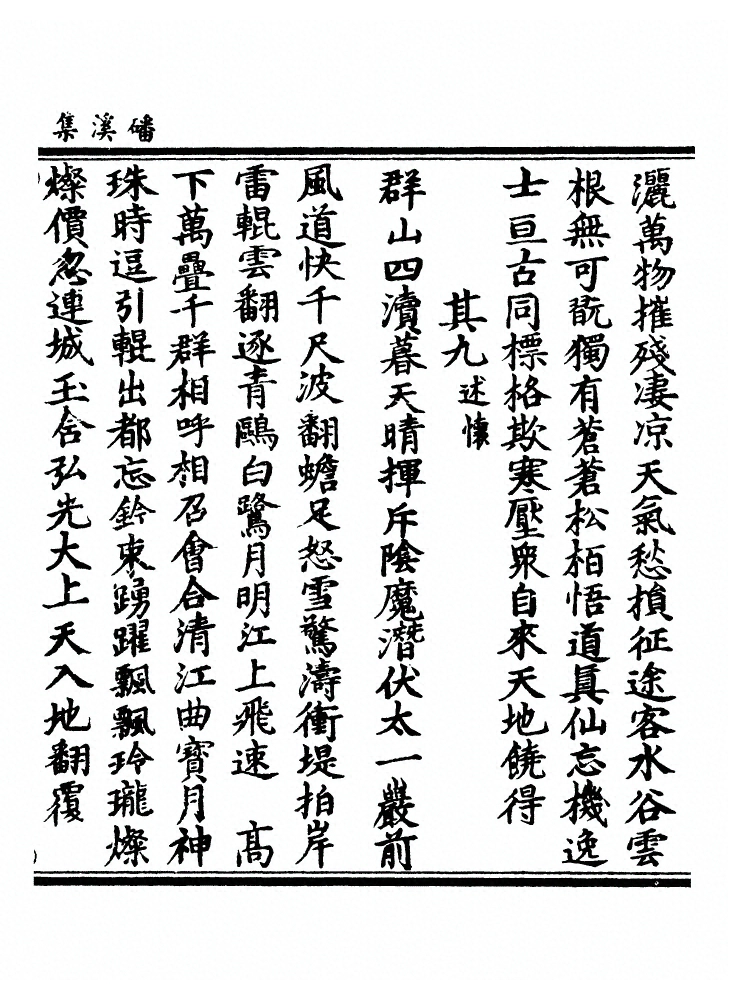 磻溪集
灑萬物摧殘淒凉天氣愁損征途客水谷雲
根無可翫獨有蒼蒼松栢悟道真仙忘機逸
士亘古同標格欺寒壓衆自來天地饒得
其九 述懷
群山四瀆暮天晴揮斥陰魔潛伏太一巖前
風道快千尺波翻蟾足怒雪驚濤衝堤拍岸
雷輥雲翻逐青鷗白鷺月明江上飛速　高
下萬疊千群相呼相召會合清江曲寶月神
珠時逗引輥出都忘鈐束踴躍飄飄玲瓏燦
燦價忽連城玉含弘光大上天入地翻覆